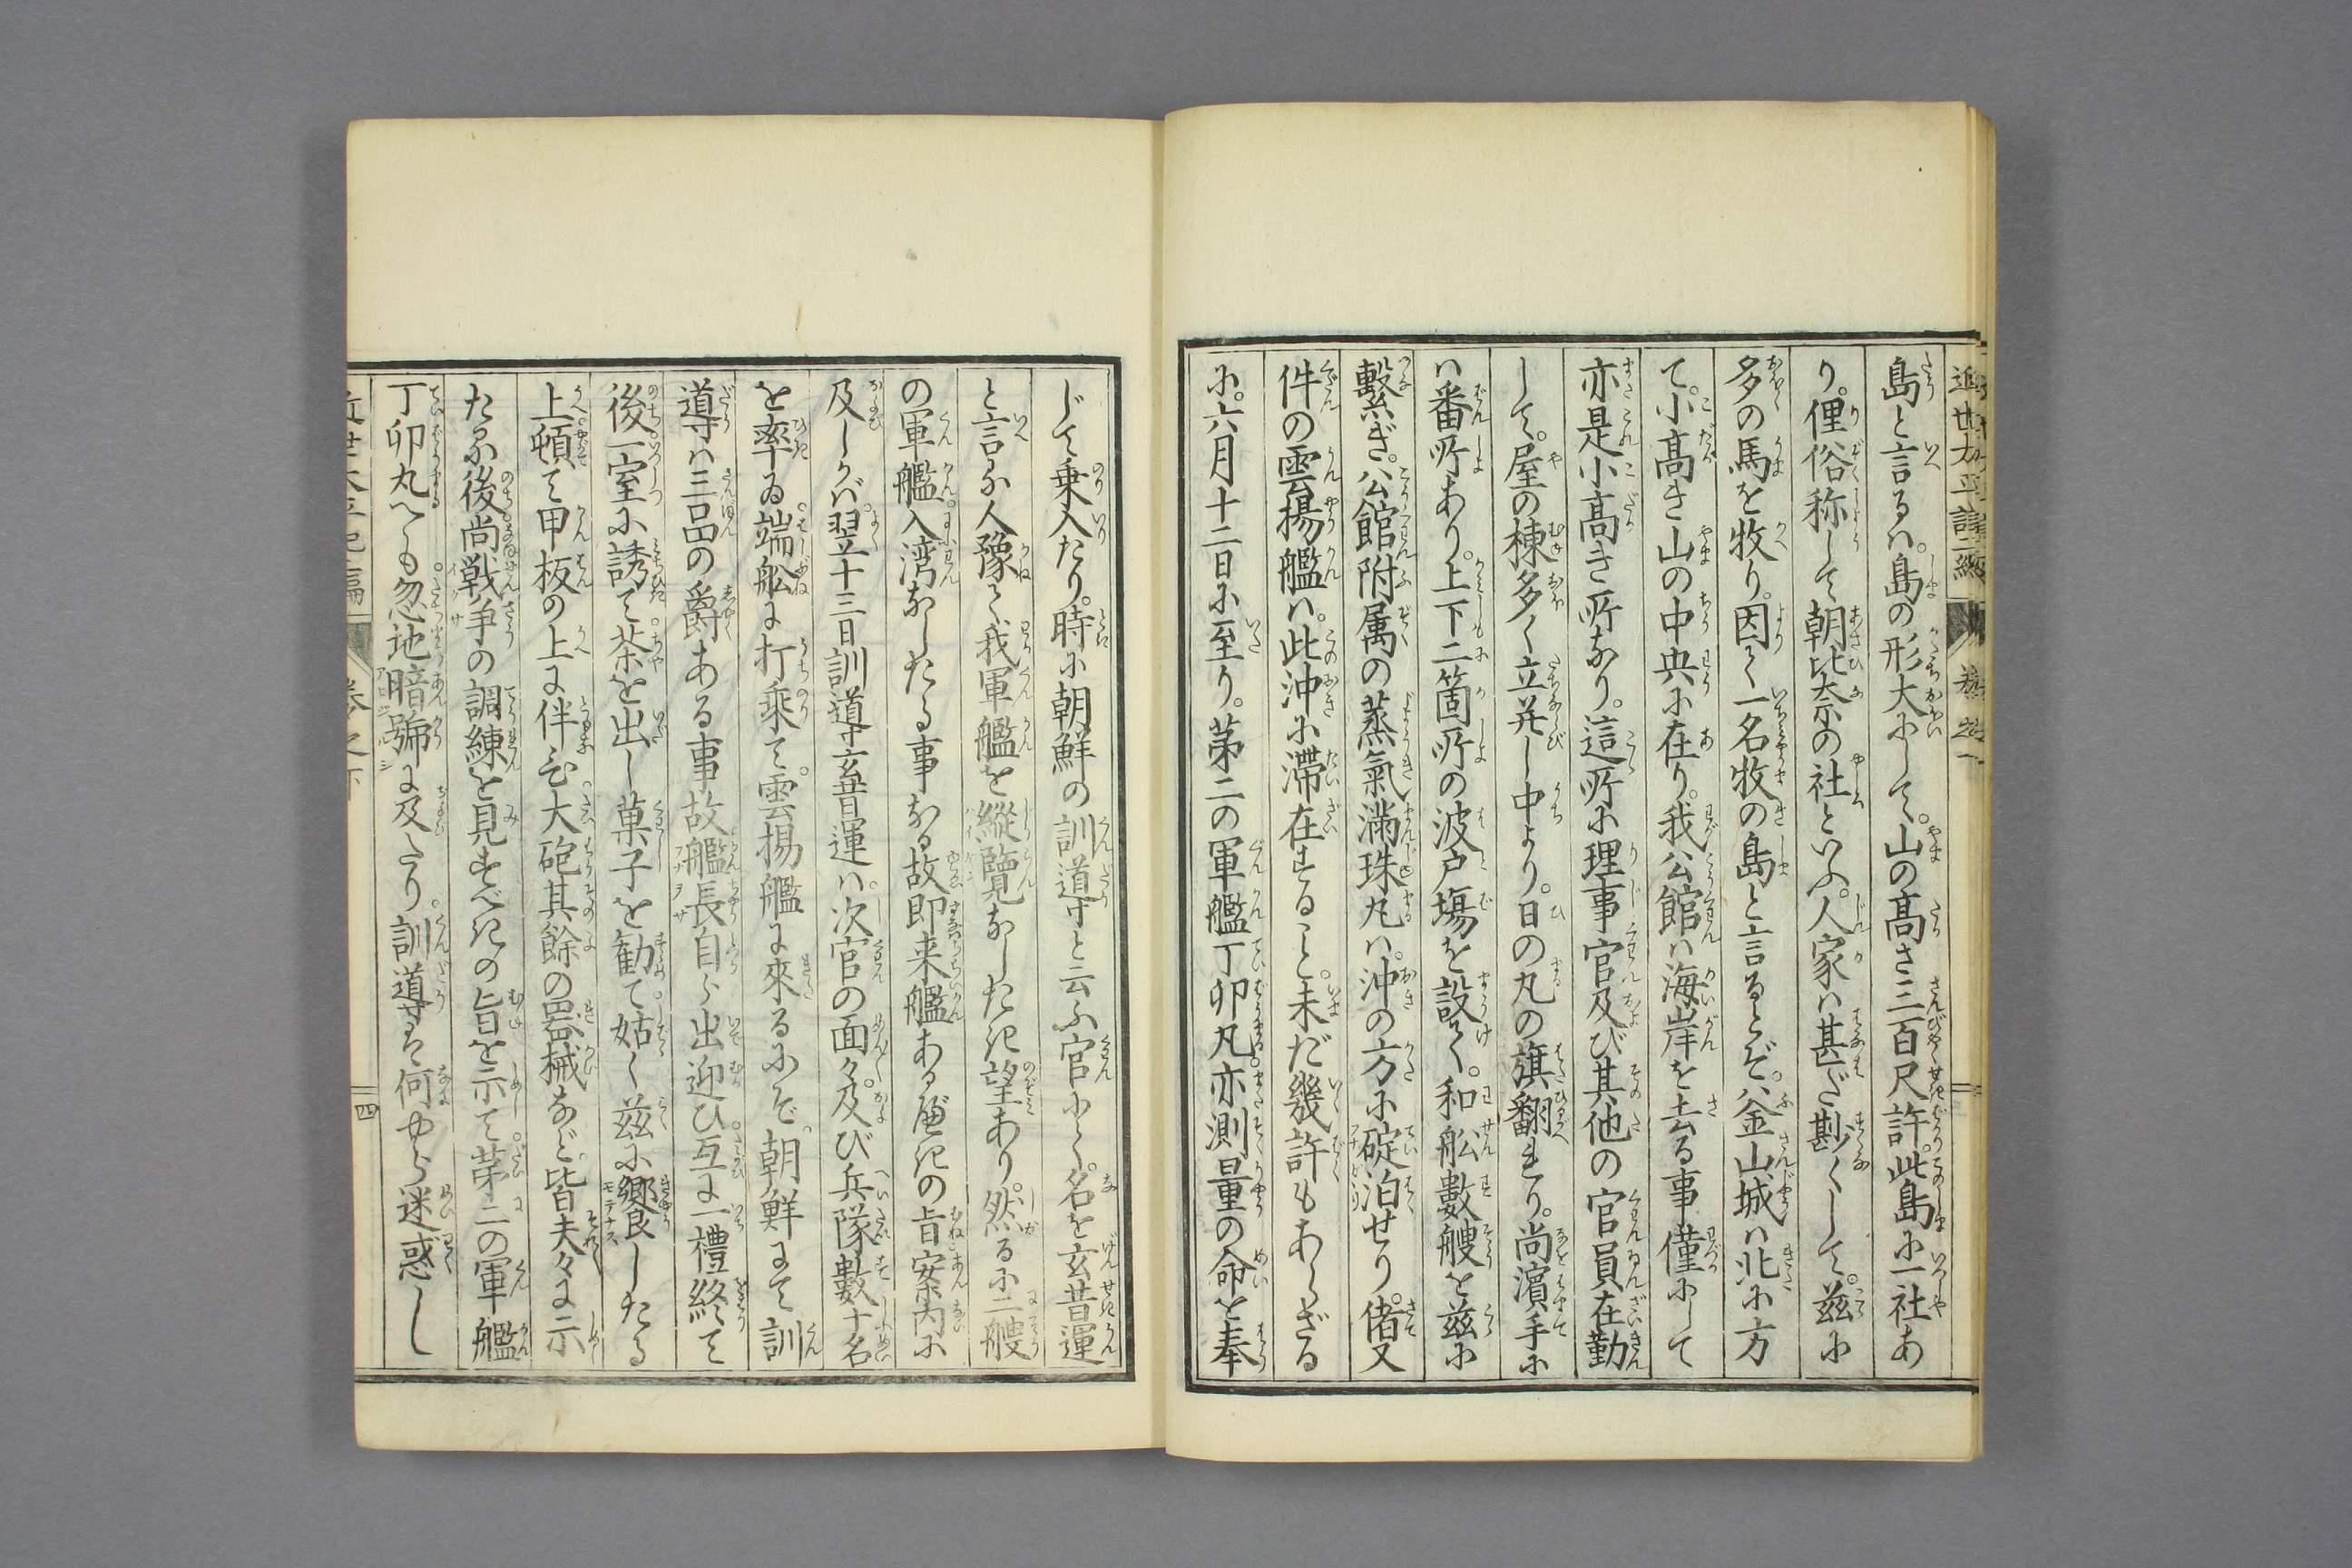 島と言るハ。島の形大にして。山の高さ三百尺許。此島に一社あ
り。俚俗称して朝比奈の社といふ。人家ハ甚だ尠くして。茲に
多の馬を牧り。因て一名牧の島と言るとぞ。釜山城ハ北に方
て。小高き山の中央に在り。我公館ハ海岸を去る事僅にして
亦是小高き所なり。這所に理事官及び其他の官員在勤
して。屋の棟多く立并し中より。日の丸の旗翻れり。尚濱手に
ハ番所あり。上下二箇所の波戸場を設て。和舩數艘を茲に
繋ぎ。公館附属の蒸氣満珠丸ハ。沖の方に碇泊せり。偖又
件の雲揚艦ハ。此沖に滞在すること。未だ幾許もあらざる
に。六月十二日に至り。第二の軍艦丁卯丸亦測量の命を奉
じて乗入たり。時に朝鮮の訓導と云ふ官にて。名を玄昔運
と言る人豫て我軍艦を縦覽なしたき望あり。然るに二艘
の軍艦入湾なしたる事なる故即来艦ある可きの旨案内に
及しかバ。翌十三日訓導玄昔運ハ。次官の面々。及び兵隊數十名
を率ゐ端舩に打乘て。雲揚艦に來るにぞ。朝鮮にて訓
導ハ三品の爵ある事故艦長自ら出迎ひ。互に一禮終て
後。一室に誘て茶を出し菓子を勧て。姑く茲に饗したる
上。頓て甲板の上に伴ひ。大砲其餘の器械など。皆夫々に示
たる後尚戦争の調練を見すべきの旨を示て。第二の軍艦
丁卯丸へも。忽地暗號に及たり。訓導は何やら迷惑し
近世太平記二編
巻之下
四